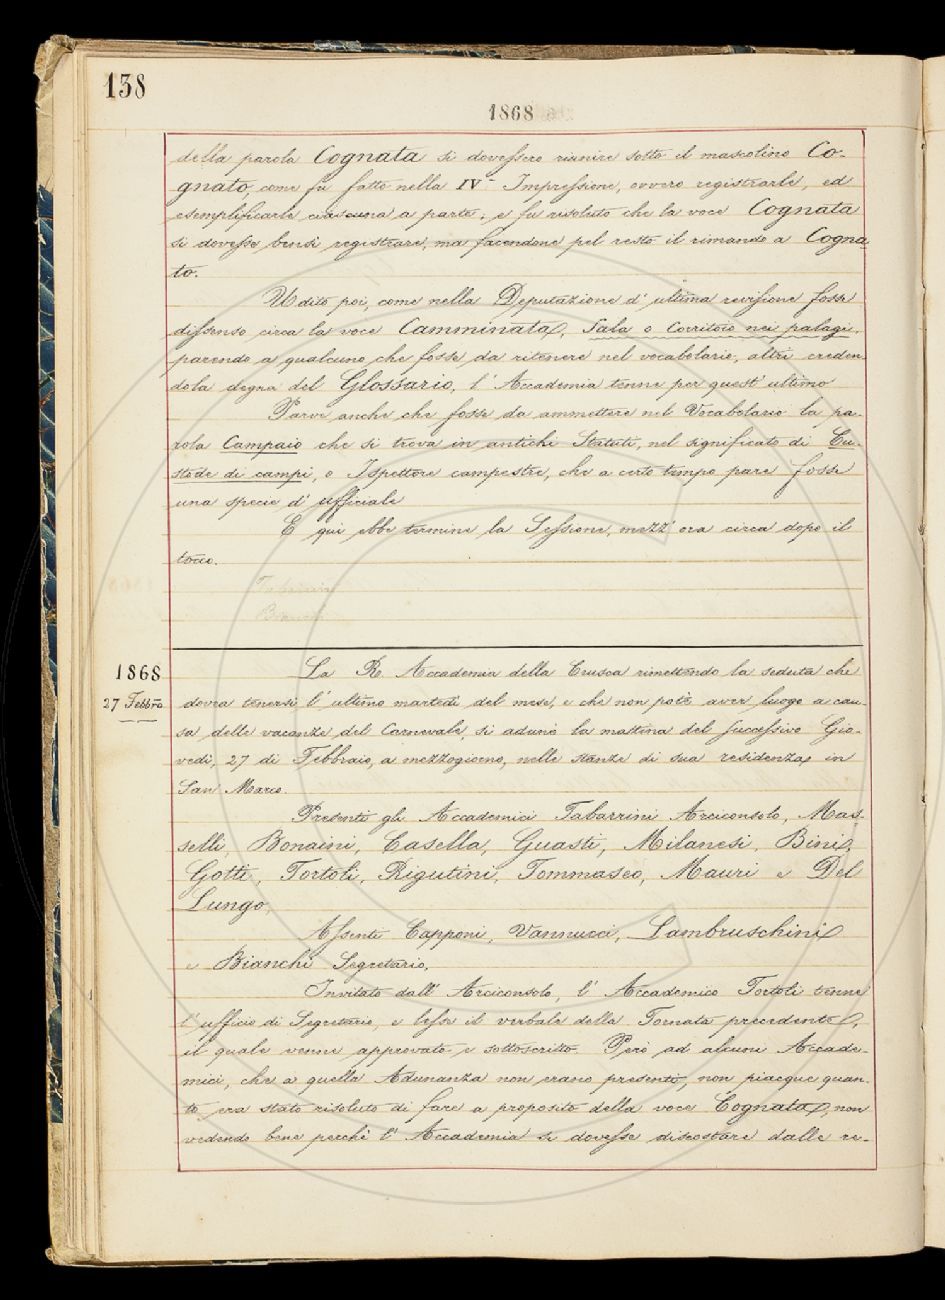 138
1868
della parola Cognata si dovessero riunire sotto il mascolino Co-
gnato, come fu fatto nella IVª Impressione, ovvero registrarle, ed
esemplificarle ciascuna a parte; e fu risoluto che la voce Cognata
si dovesse bensì registrare, ma facendone pel resto il rimando a Cogna
to.
Udito poi, come nella Deputazione d' ultima revisione fosse
dissenso circa la voce Camminata, Sala o Corritoio nei palagi,
parendo a qualcuno che fosse da ritenere nel vocabolario, altri creden
dola degna del Glossario, l' Accademia tenne per quest' ultimo
Parve anche che fosse da ammettere nel Vocabolario la pa-
rola Campaio che si trova in antichi Statuti, nel significato di Cu-
stode di campi, o Ispettore campestre, che a certo tempo pare fosse
una specie d' ufficiale
E qui ebbe termine la Sessione, mezz' ora circa dopo il
tocco.
Tabarrini
Bianchi
1868
27 Febbro
La R. Accademia della Crusca rimettendo la seduta che
dovea tenersi l' ultimo martedì del mese, e che non potè aver luogo a cau-
sa delle vacanze del Carnevale, si adunò la mattina del successivo Gio-
vedì, 27 di Febbraio, a mezzogiorno, nelle stanze di sua residenza, in
San Marco.
Presenti gli Accademici Tabarrini Arciconsolo, Mas-
selli, Bonaini, Casella, Guasti, Milanesi, Bini,
Gotti, Tortoli, Rigutini, Tommaseo, Mauri e Del
Lungo,
Assenti Capponi, Vannucci, Lambruschini
e Bianchi Segretario.
Invitato dall' Arciconsolo, l' Accademico Tortoli tenne
l' ufficio di Segretario, e lesse il verbale della Tornata precedente,
il quale venne approvato e sottoscritto. Però ad alcuni Accade-
mici, che a quella Adunanza non erano presenti, non piacque quan-
to era stato risoluto di fare a proposito della voce Cognata, non
vedendo bene perchè l' Accademia si dovesse discostare dalle re-